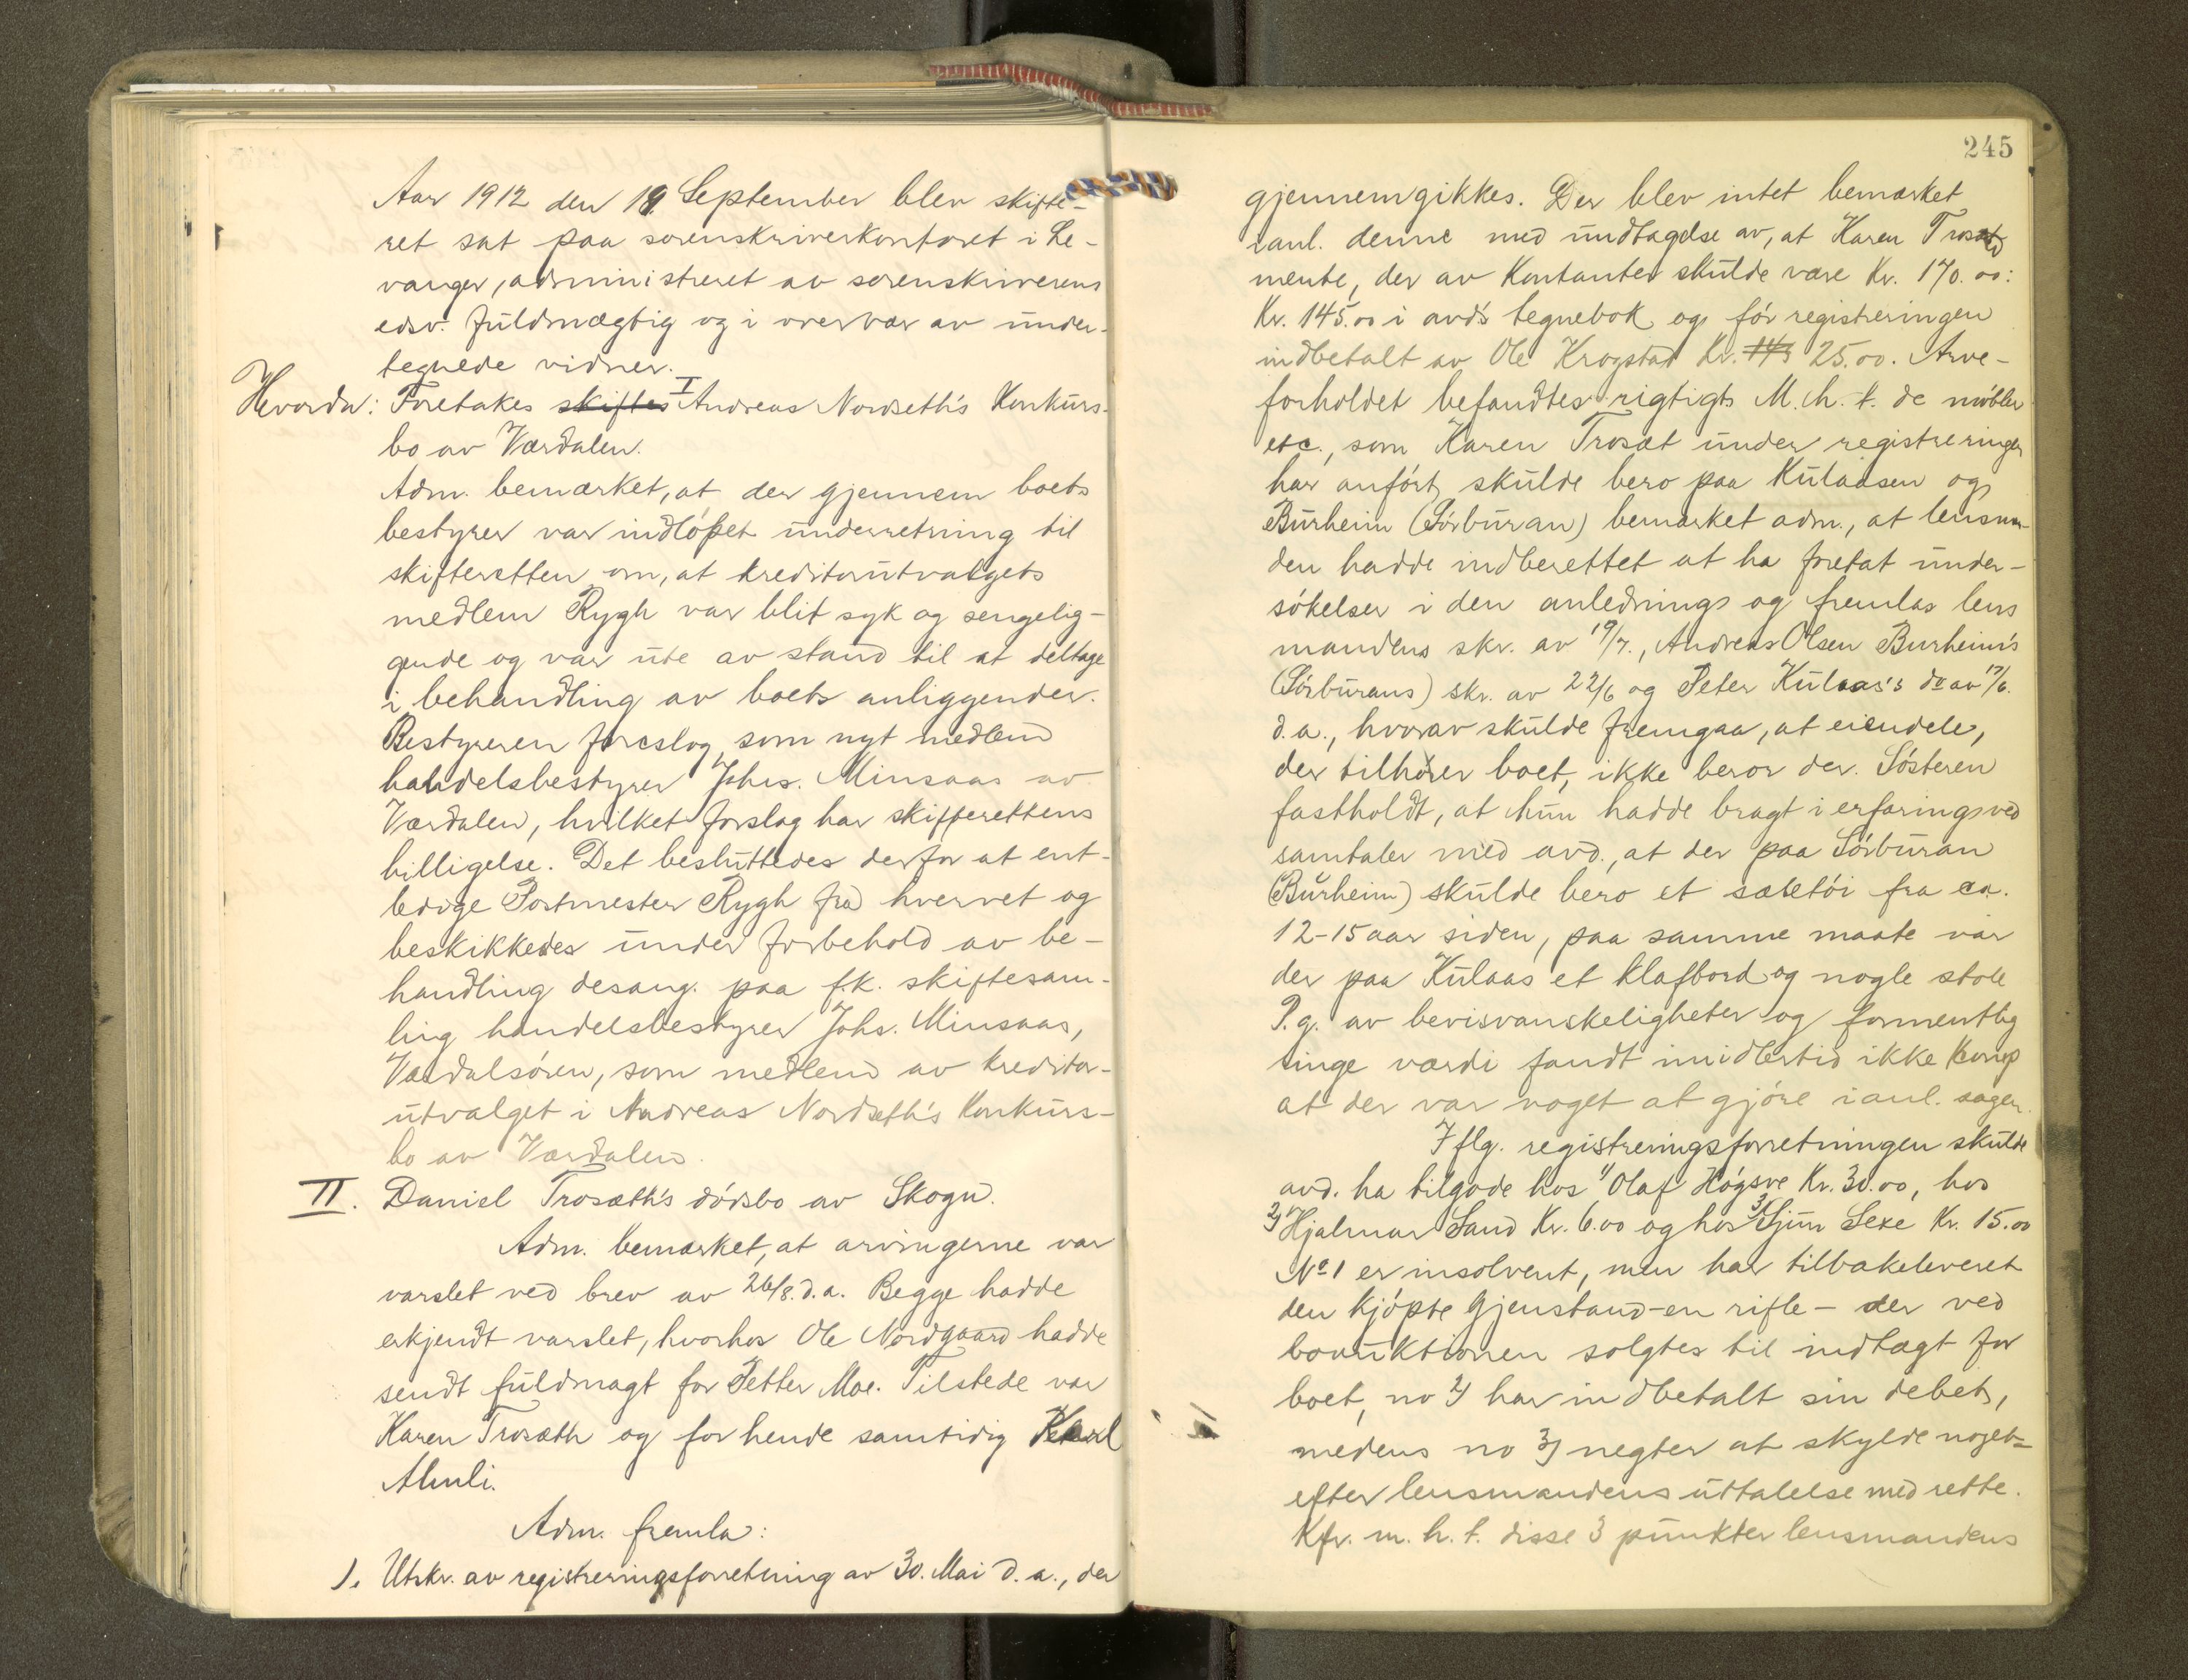 Aar 1912 den 19. September blev skifte-
ret sat paa sorenskriverkontoret i Le-
vanger, administreret av sorenskriverens
edsv. fuldmægtig og i overvær av under-
tegnede vidner.
Hvorda: Foretakes skiftes I Andreas Nordseth's Konkurs-
bo av Værdalen.
Adm. bemærket, at der gjennem boets
bestyrer var indløpet underretning til
skifteretten om, at kreditorutvalgets
medlem Rygh var blit syk og sengelig-
gende og var ute av stand til at deltage
i behandling av boets anliggender.
Bestyreren foreslog som nyt medlem
handelsbestyrer Johs. Minsaas av
Værdalen, hvilket forslag har skifterettens
billigelse. Det besluttedes derfor at ent-
ledige Postmester Rygh fra hvervet og
beskikkedes under forbehold av be-
handling desang. paa f.k. skiftesam-
ling handelsbestyrer Johs. Minsaas,
Værdalsøren, som medlem av kreditor-
utvalget i Andreas Nordseth's Konkurs-
bo av Værdalen.
II. Daniel Trosæth's dødsbo av Skogn.
Adm. bemærket, at arvingerne var
varslet ved brev av 26/8. d.a. Begge hadde
erkjendt varslet, hvorhos Ole Nordgaard hadde
sendt fuldmagt for Petter Moe. Tilstede var
Karen Trosæth og for hende samtidig Karl
Almli.
Adm. fremla:
1. Utskr. av registreringsforretning av 30. Mai d.a., der
245
gjennemgikkes. Der blev intet bemærket
ianl. denne med undtagelse av, at Karen Trosæt
mente, der av Kontanter skulde være Kr. 170.00:
Kr. 145.00 i avd's tegnebok og før registreringen
indbetalt av Ole Krogstad Kr. 145 25.00. Arve-
forholdet befandtes rigtigt. M.h.t. de møbler
etc., som Karen Trosæt under registreringen
har anført, skulde bero paa Kulaasen og
Burheim (Sørburan) bemærket adm., at lensman-
den hadde indberettet at ha foretat under-
søkelser i den anlednings og fremlas lens
mandens skr. av 19/7., Andreas Olsen Burheim's
(Sørburans) skr. av 22/6 og Peter Kulaas's do av 17/6.
d.a., hvorav skulde fremgaa, at eiendele,
der tilhører boet, ikke beror der. Søsteren
fastholdt, at hun hadde bragt i erfaring ved
samtaler med avd., at der paa Sørburan
(Burheim) skulde bero et sæletøi fra ca.
12-15 aar siden, paa samme maate var
der paa Kulaas et klafbord og nogle stole
P.g. av bevisvanskeligheter og formentlig
ringe værdi fandt imidlertid ikke Komp
at der var noget at gjøre i anl. sagen.
Iflg. registreringsforretningen skulde
avd. ha tilgode hos 1) Olaf Høgsve Kr. 30.00, hos
2) Hjalmar Sand Kr. 6.00 og hos 3) Sjur Sexe Kr. 15.00
No 1 er insolvent, men har tilbakeleveret
den kjøpte gjenstand - en rifle - der ved
boauktionen solgtes til indtægt for
boet, no 2) har indbetalt sin debet,
medens no 3) negter at skylde noget -
efter lensmandens uttalelse med rette.
Kfr. m.h.t. disse 3 punkter lensmandens